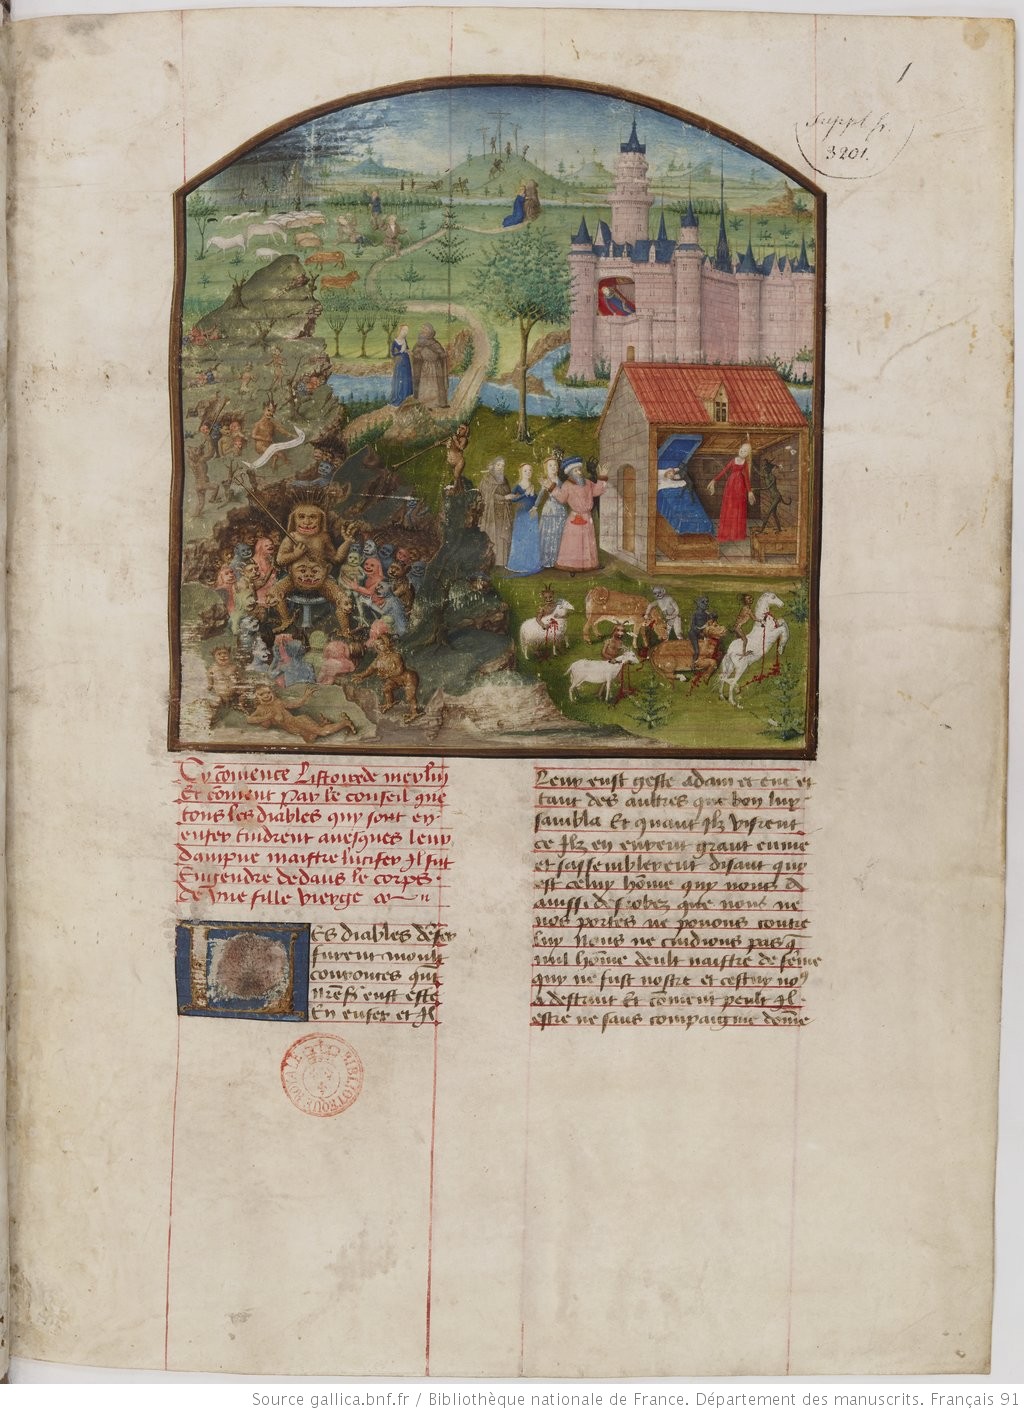 1
Suppl. fr.
3201.
Cy cõmence Listoire de merlin
Et cõment par le conseil que
tous les diables quy sont en
enfer tindrent auesques leur
dampne maistre lucifer Il fut
Engendre dedans le corps
de vne fille vierge
Les diables dẽfer
furent moult
courouces quãt
nrẽ sr̃ eust este
En enfer et Il
Leur eust geste adam et eue et
tant des aultres que bon luy
sambla Et quant Ilz virent
ce Ilz en eurent grant enuie
et sassemblerent disant quy
est celuy hõme quy nous a
ainssi desrobez que nous ne
nos portes ne pouons contre
luy Nous ne cuidions pas q̃
nul hõme deult naistre de fẽme
quy ne fust nostre et cestuy no9
a destruit Et cõment peult Il
estre ne sans compaignie dõme
BIBLIOTHEQUE ROYALE
Source gallica.bnf.fr / Bibliothèque nationale de France. Département des manuscrits. Français 91